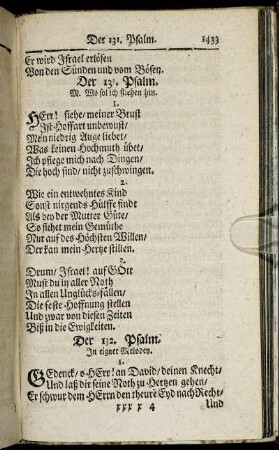 Der 131. Psalm. 1433
Er wird Israel erlösen
Von den Sünden und vom Bösen.
Der 131. Psalm.
M. Wo sol ich fliehen hin.
1.
HErr! siehe/ meiner Brust
Ist Hoffart unbewust/
Mein niedrig Auge liebet/
Was keinen Hochmuth übet/
Ich pflege mich nach Dingen/
Die hoch sind/ nicht zuschwingen.
2.
Wie ein entwehntes Kind
Sonst nirgends Hülffe findt
Als bey der Mutter Güte/
So siehet mein Gemüthe
Nur auf des Höchsten Willen/
Der kan mein Hertze stillen.
3.
Drum/ Israel! auf GOtt
Must du in aller Noth
In allen Unglücks-fällen/
Die feste Hoffnung stellen
Und zwar von diesen Zeiten
Biß in die Ewigkeiten.
Der 132. Psalm.
In eigner Melodey.
1.
GEdenck/ o HErr! an David/ deinen Knecht/
Und laß dir seine Noth zu Hertzen gehen/
Er schwur dem HErrn den theure Eyd nach Recht/
xxx x 4 Und